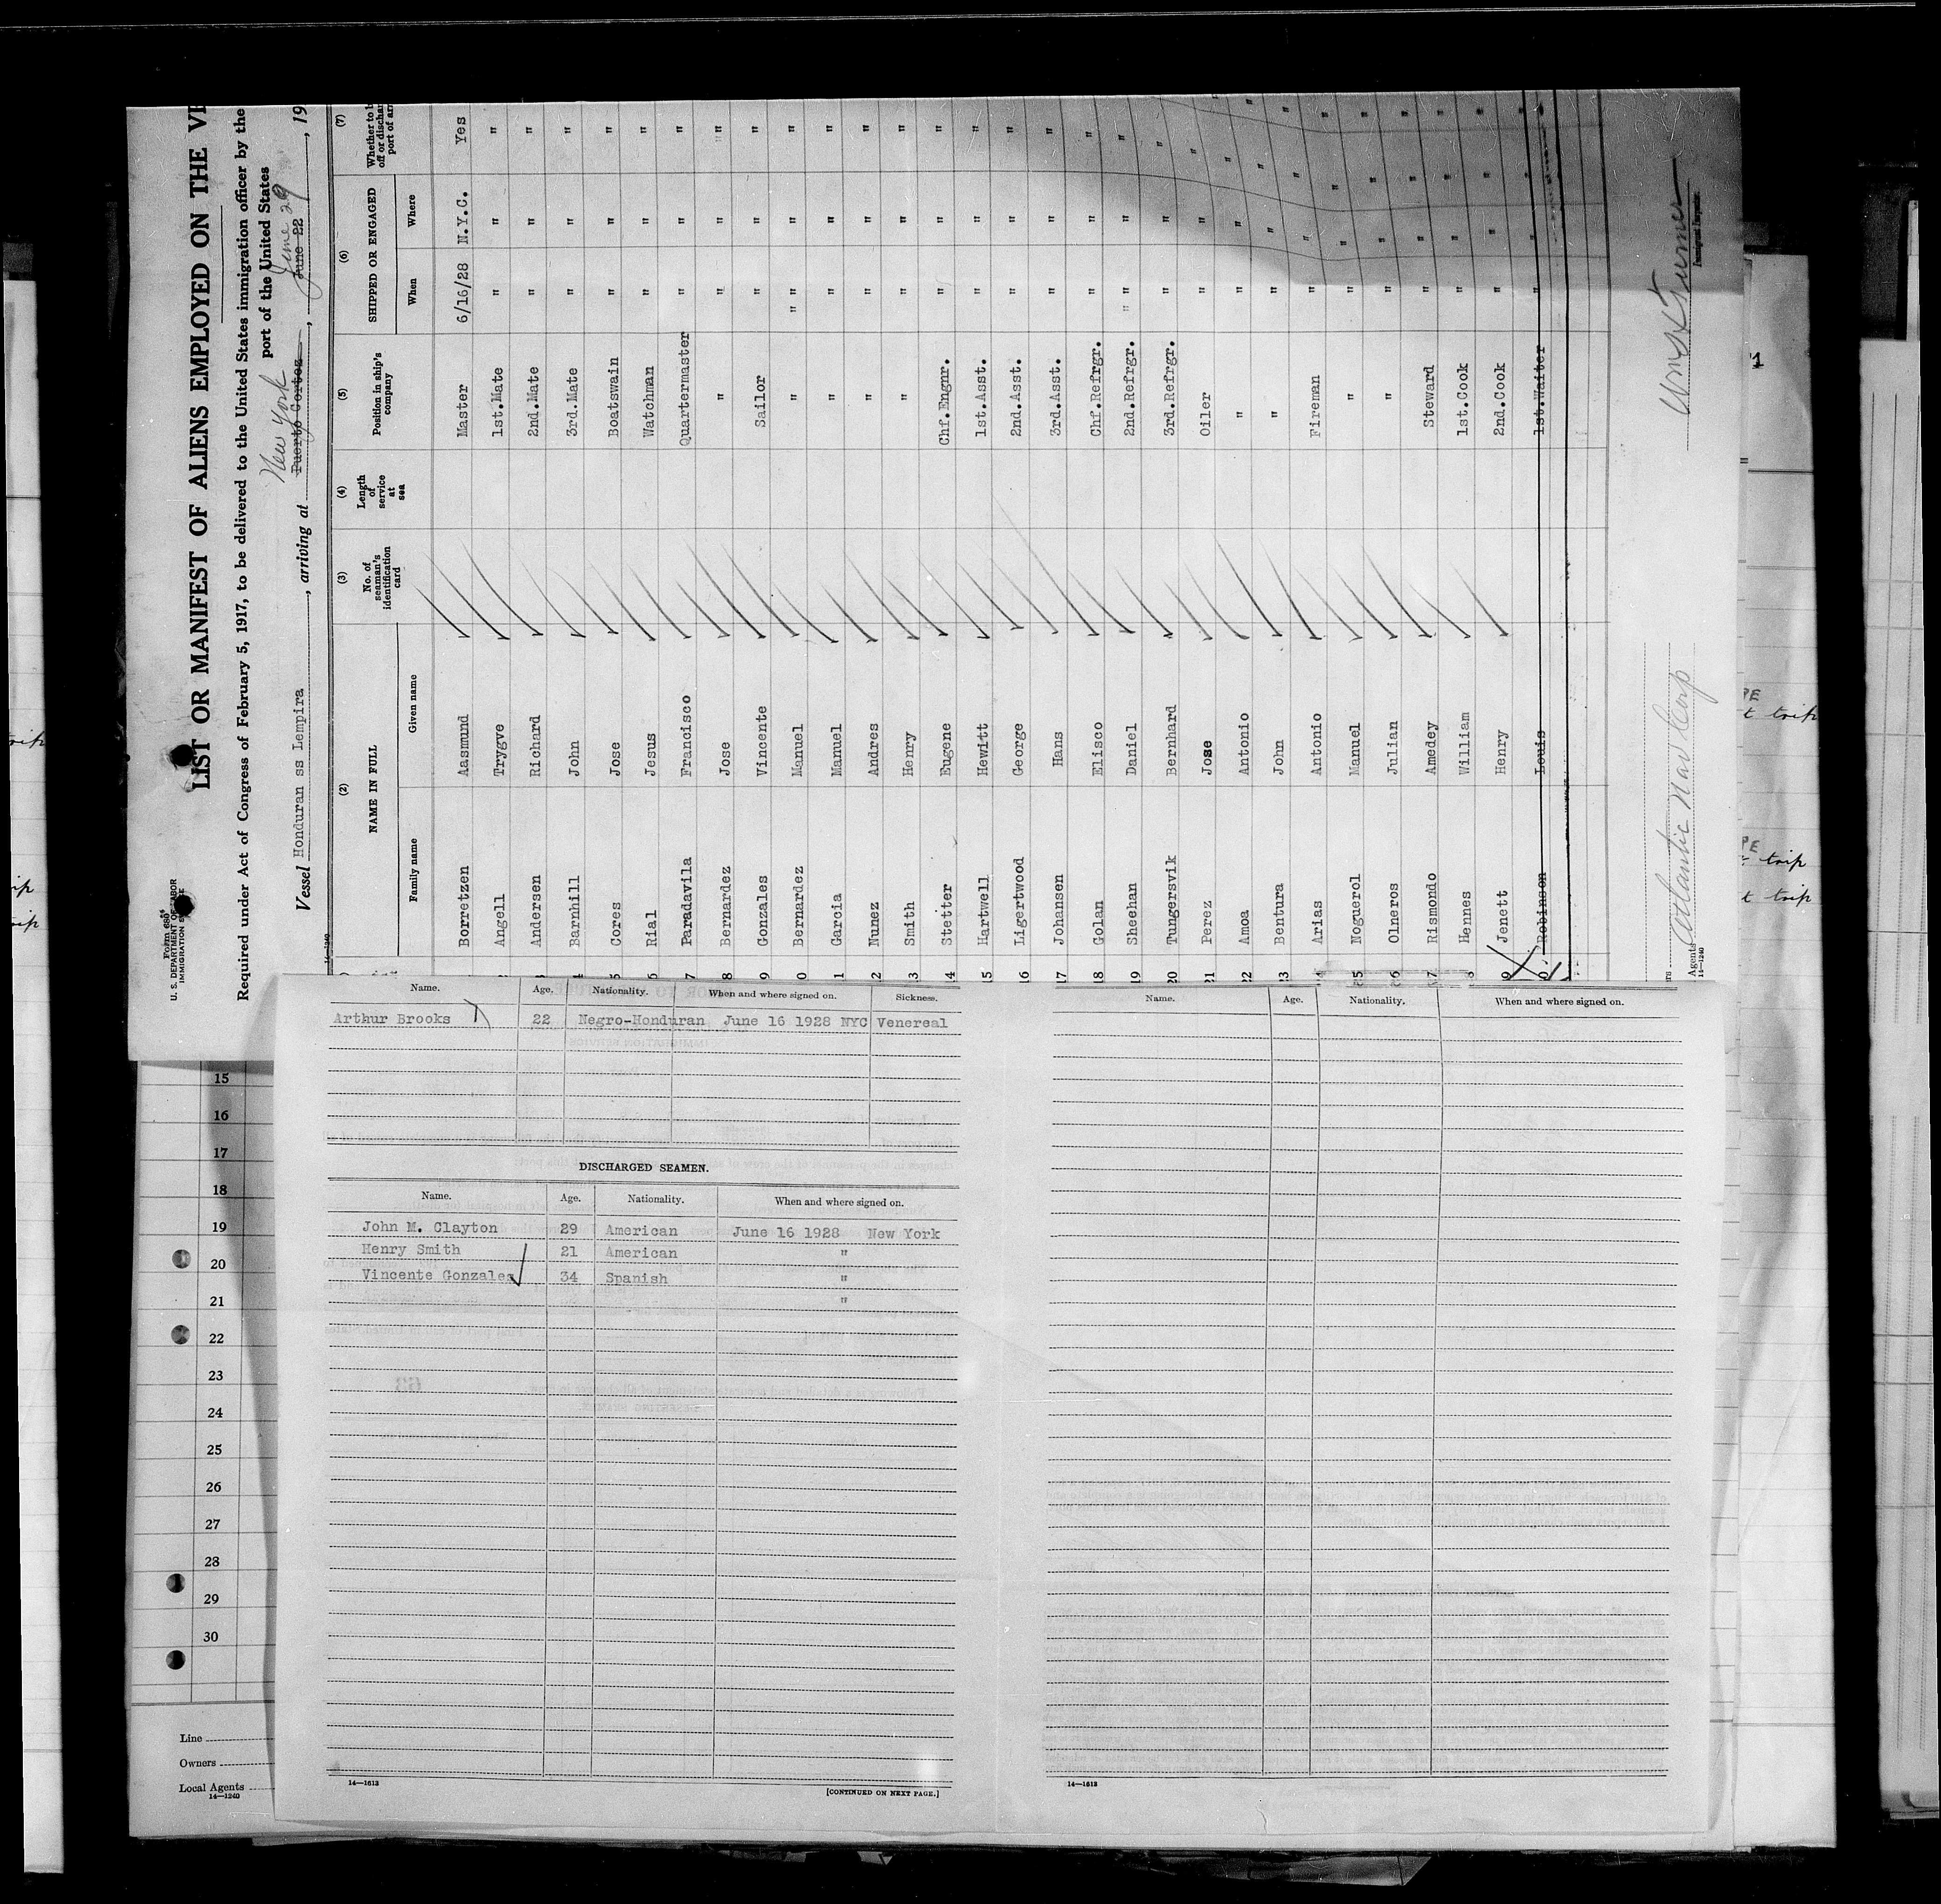 Form 680
U. S. DEPARTMENT OF LABOR
IMMIGRATION SERVICE
LIST OR MANIFEST OF ALIENS EMPLOYED ON THE VE
Required under Act of Congress of February 5, 1917, to be delivered to the United States immigration officer by the
port of the United States
New York June 29
Vessel Honduran ss Lempira, arriving at Puerto Cortez, June 22, 19
(2) (3) (4) (5) (6) (7)
NAME IN FULL No. of seaman's identification card Length of service at sea Position in ship's company SHIPPED OR ENGAGED Whether to b off or dischar port of arr
Family name Given name When Where
Borretzen Aasmund Master 6/16/28 N.Y.C. Yes
Angell Trygve 1st.Mate " " "
Andersen Richard 2nd.Mate " " "
Barnhill John 3rd.Mate " " "
5 Cores Jose Boatswain " " "
6 Rial Jesus Watchman " " "
7 Paradavila Francisco Quartermaster " " "
8 Bernardez Jose " " " "
9 Gonzales Vincente Sailor " " "
0 Bernardez Manuel " " " "
11 Garcia Manuel " " " "
12 Nunez Andres " " " "
13 Smith Henry " " " "
14 Stetter Eugene Chf.Engnr. " " "
15 Hartwell Hewitt 1st.Asst. " " "
16 Ligertwood George 2nd.Asst. " " "
17 Johansen Hans 3rd.Asst. " " "
18 Golan Elisco Chf.Refrgr. " " "
19 Sheehan Daniel 2nd.Refrgr. " " "
20 Tungersvik Bernhard 3rd.Refrgr. " " "
21 Perez Jose Oiler " " "
22 Amoa Antonio " " " "
23 Bentura John " " " "
Arias Antonio Fireman " " "
5 Noguerol Manuel " " " "
6 Olneros Julian " " " "
7 Rismondo Amedey Steward " " "
8 Hennes William 1st.Cook " " "
9 Jenett Henry 2nd.Cook " " "
0 Robinson Louis 1st.Waiter " " "
Agents Atlantic Nav Corp
14—1240
Immigrant Inspector.
Name. Age. Nationality. When and where signed on. Sickness.
Arthur Brooks 22 Negro-Honduran June 16 1928 NYC Venereal
DISCHARGED SEAMEN.
Name. Age. Nationality. When and where signed on.
John M. Clayton 29 American June 16 1928 New York
Henry Smith 21 American "
Vincente Gonzales 34 Spanish "
"
14—1613
[CONTINUED ON NEXT PAGE.]
Name. Age. Nationality. When and where signed on.
14—1613
15
16
17
18
19
20
21
22
23
24
25
26
27
28
29
30
Line
Owners
Local Agents
14—1240
t trip
trip
t trip